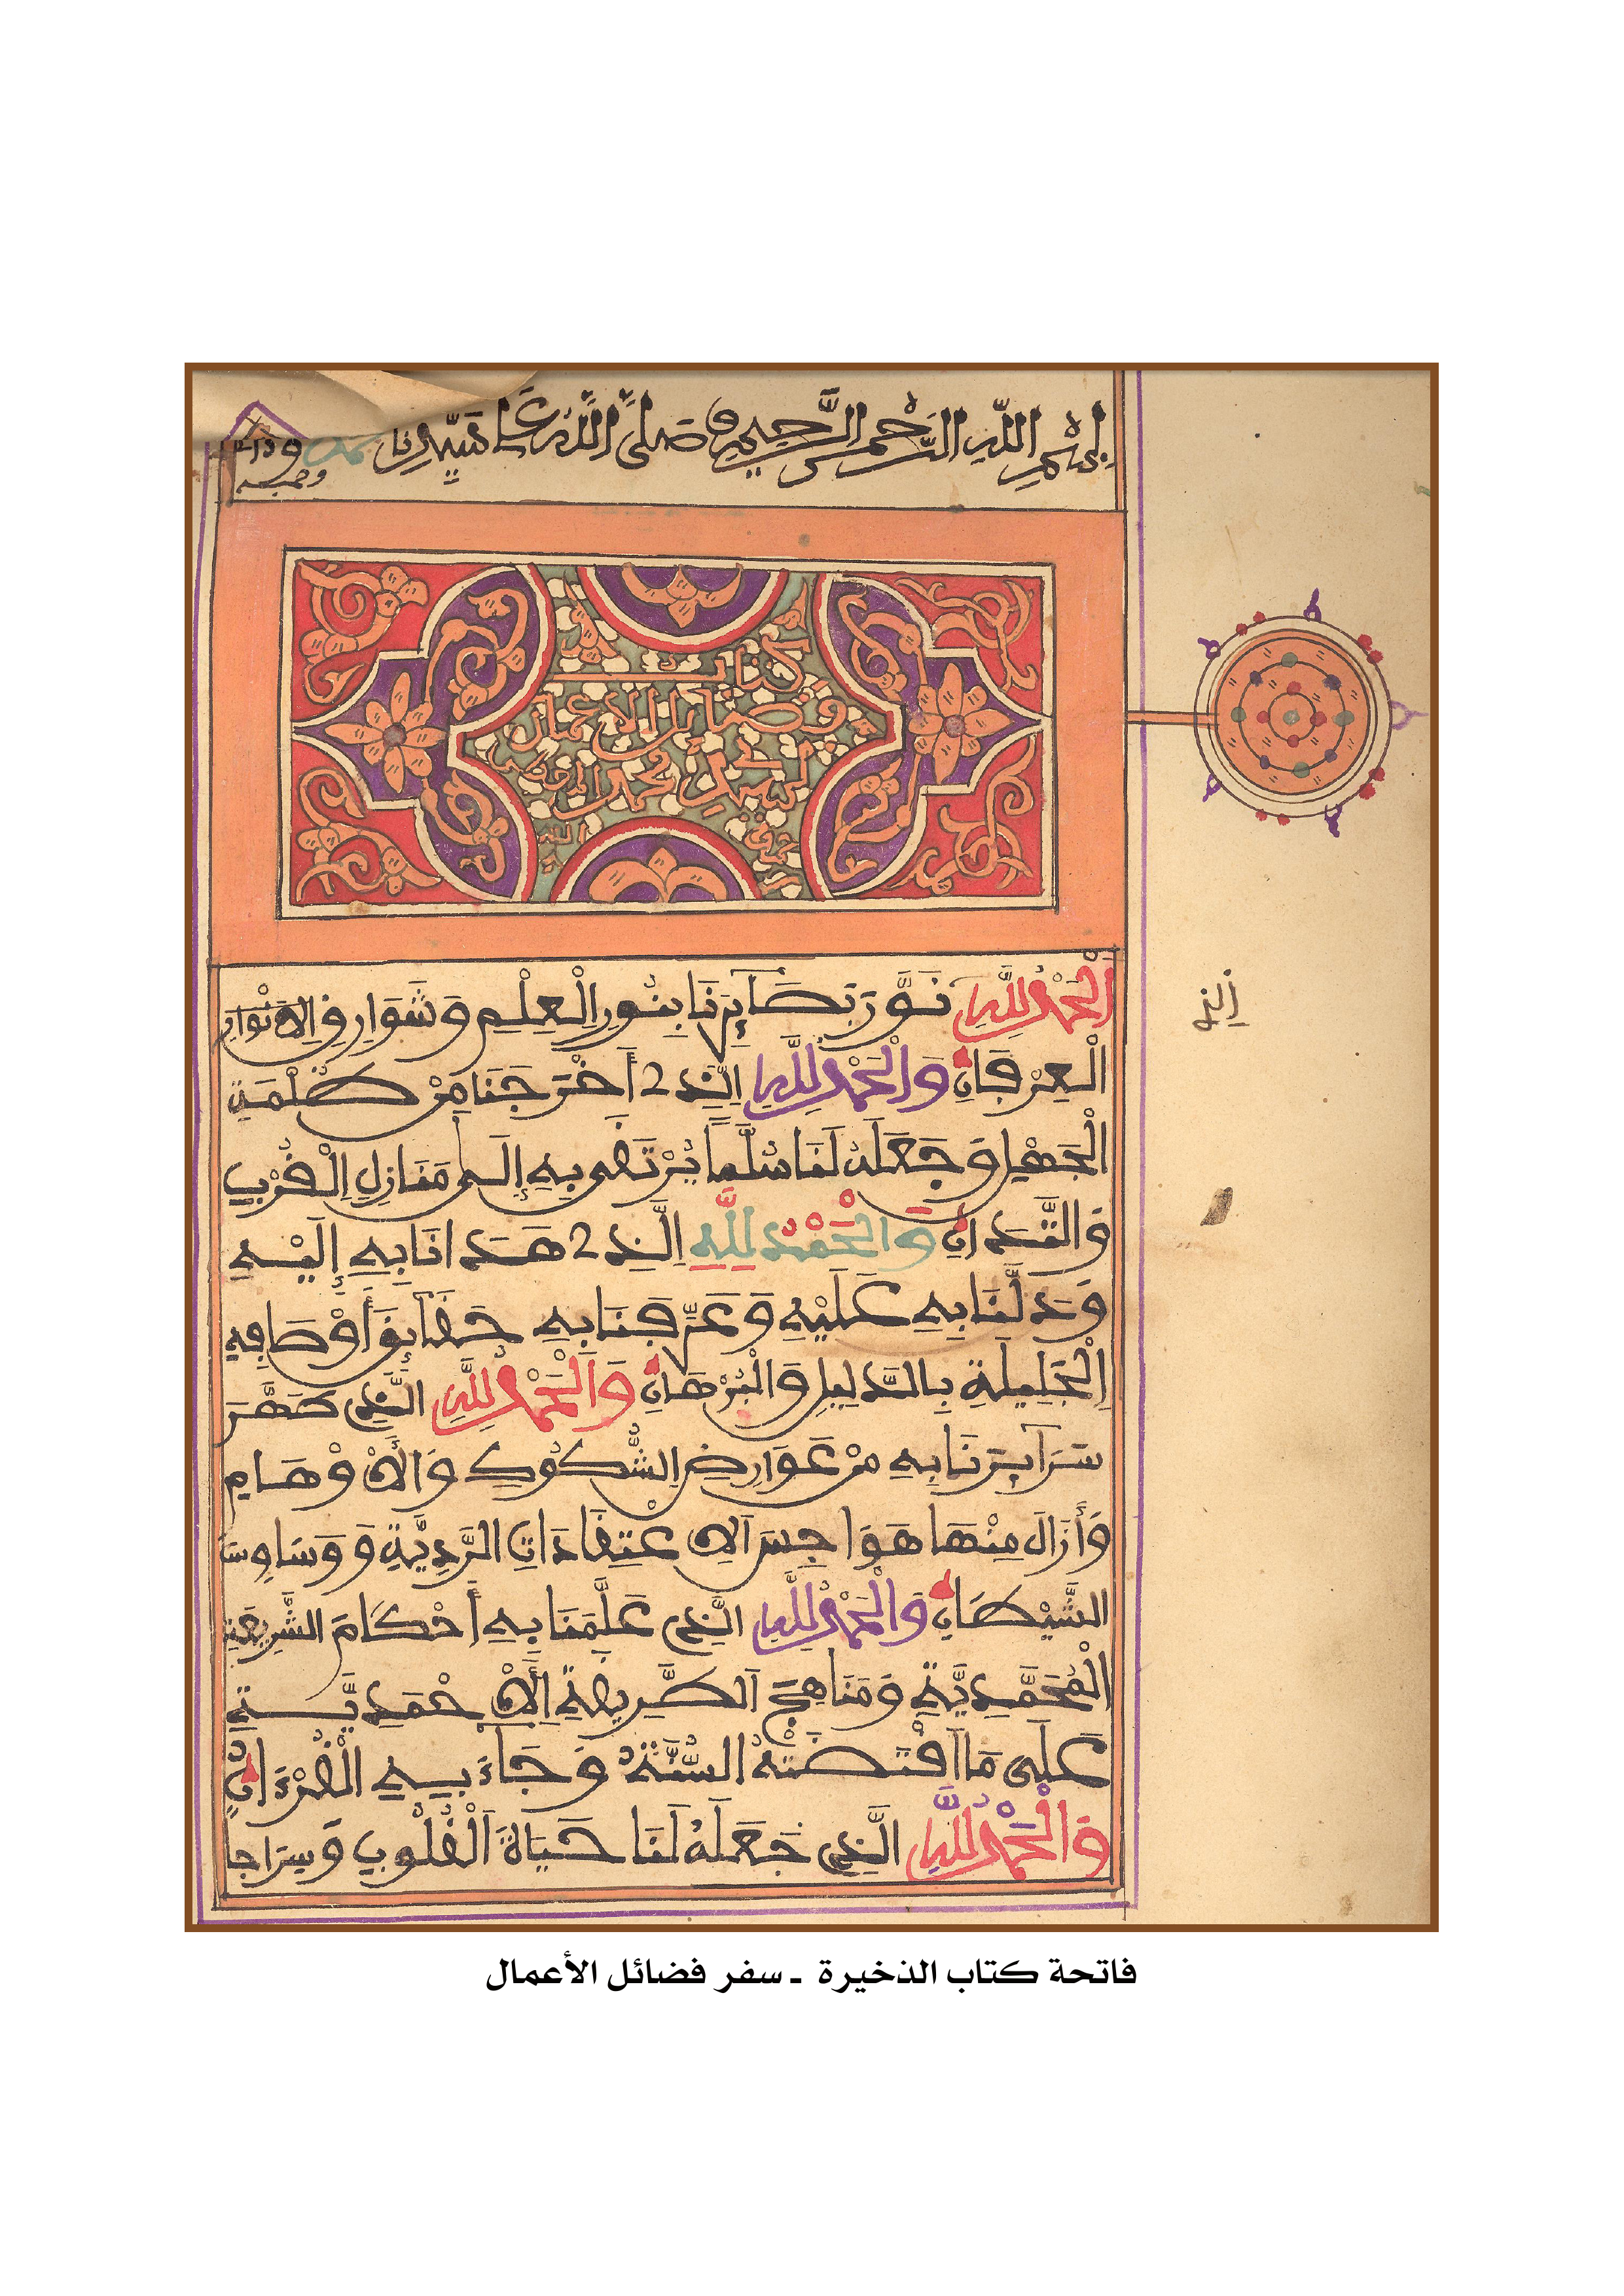 بِسْمِ اللَّهِ الرَّحْمَٰنِ الرَّحِيمِ صَلَّى اللَّهُ عَلَى سَيِّدِنَا مُحَمَّد وءاله وصحبه
كتاب
فضايل الاعمال
لسيدي محمد المعطى
رضي الله
الْحَمْدُ لِلَّهِ نَوَّرَ بَصَآئِرَنَا بِنُورِ الْعِلْمِ وَشَوَارِقِ الْأَنْوَارِ
الْعِرْفَانِ وَالْحَمْدُ لِلَّهِ الَّذِي أَخْرَجَنَا مِنْ ظُلْمَةِ
الْجَهْلِ وَجَعَلَهُ لَنَا سُلَّمًا يُرْتَقَى بِهِ إِلَى مَنَازِلِ الْقُرْبِ
وَالتَّدَانِ وَالْحَمْدُ لِلَّهِ الَّذِي هَدَانَا بِهِ إِلَيْهِ
وَدَلَّنَا بِهِ عَلَيْهِ وَعَرَّفَنَا بِهِ حَقَآئِقَ أَوْصَافِهِ
الْجَلِيلَةِ بِالدَّلِيلِ وَالْبُرْهَانِ وَالْحَمْدُ لِلَّهِ الَّذِي طَهَّرَ
سَرَآئِرَنَا بِهِ مِنْ عَوَارِضِ الشُّكُوكِ وَالْأَوْهَامِ
وَأَزَالَ مِنْهَا هَوَاجِسَ الِاعْتِقَادَاتِ الرَّدِيَّةِ وَوَسَاوِسَ
الشَّيْطَانِ وَالْحَمْدُ لِلَّهِ الَّذِي عَلَّمَنَا بِهِ أَحْكَامَ الشَّرِيعَةِ
الْمُحَمَّدِيَّةِ وَمَنَاهِجَ الطَّرِيقَةِ الْأَحْمَدِيَّةِ
عَلَى مَا اقْتَضَتْهُ السُّنَّةُ وَجَاءَ بِهِ الْقُرْءَانُ
وَالْحَمْدُ لِلَّهِ الَّذِي جَعَلَهُ لَنَا حَيَاةَ الْقُلُوبِ وَسِرَاجا
فاتحة كتاب الذخيرة ـ سفر فضائل الأعمال